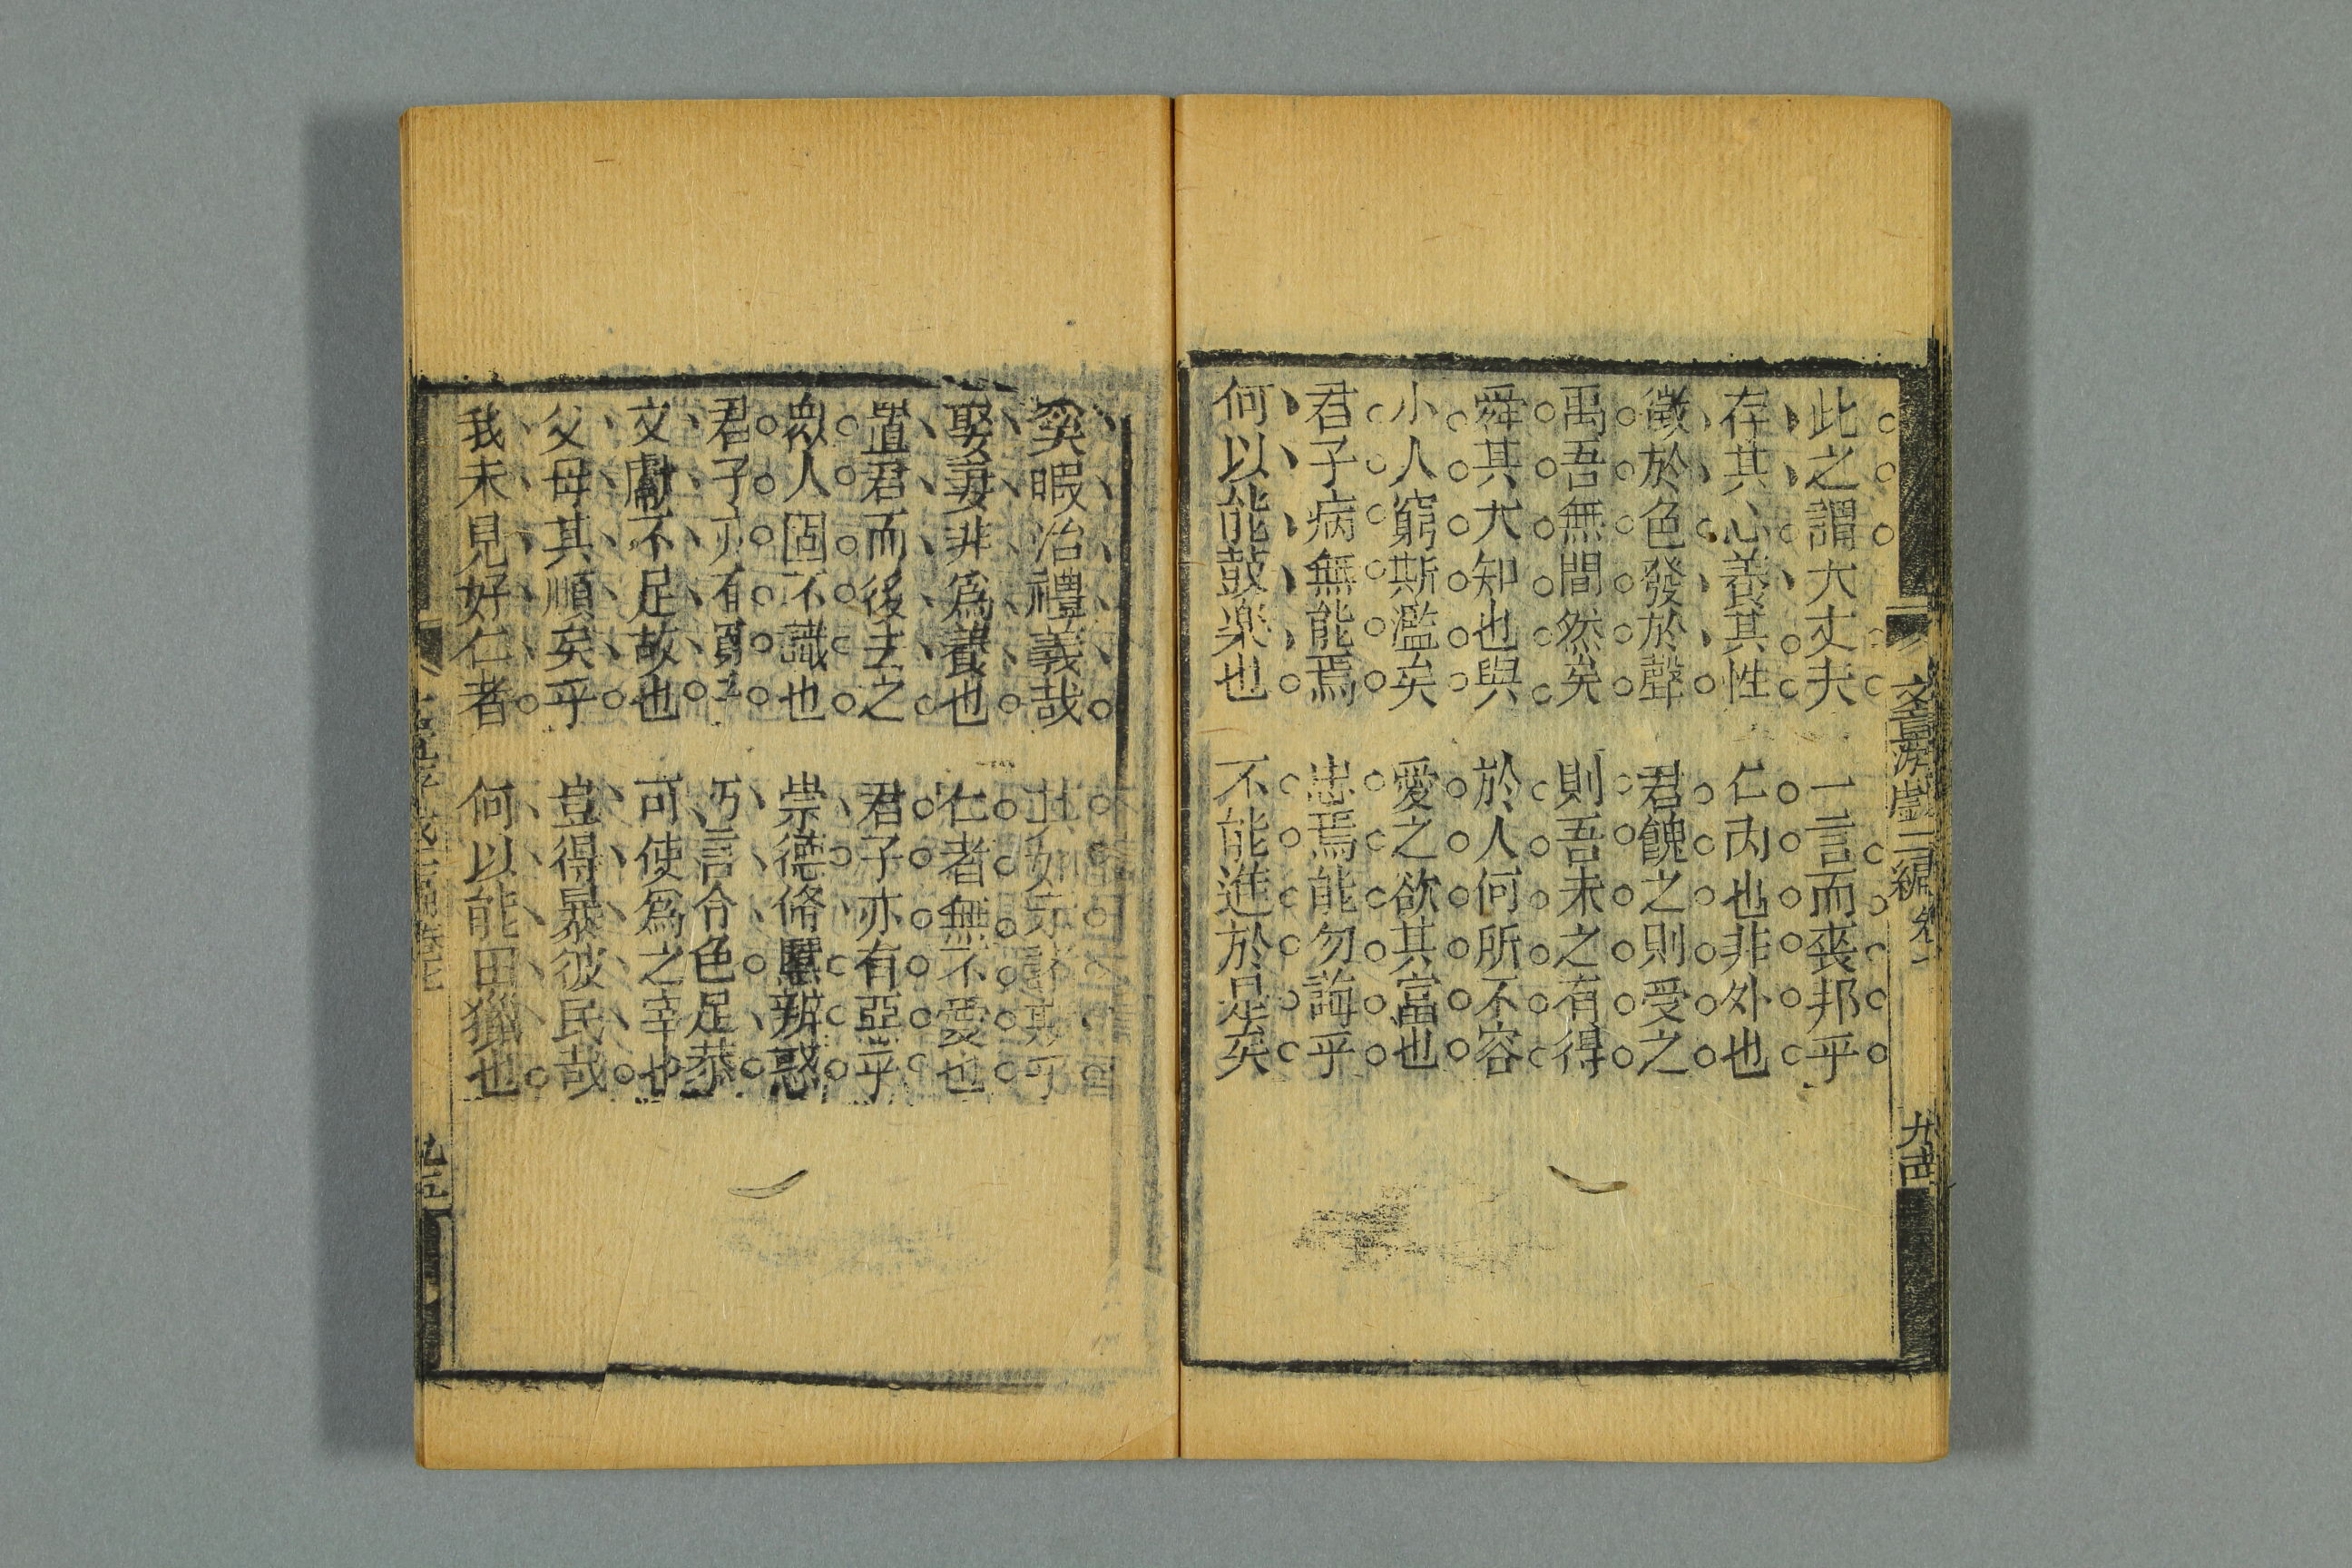 此之謂大丈夫 一言而喪邦乎
存其心養其性 仁內也非外也
徵於色發於聲 君餽之則受之
禹吾無間然矣 則吾未之有得
舜其大知也與 於人何所不容
小人窮斯濫矣 愛之欲其當也
君子病無能焉 忠焉能勿誨乎
何以能鼓樂也 不能進於是矣
文章游戲二編 卷 九西
奚暇治禮義哉 此如 其可
娶妻非爲養也 仁者無不愛也
置君而後去之 君子亦有惡乎
衆人固不識也 崇德脩慝辨惑
君子亦有窮乎 巧言令色足恭
文獻不足故也 可使爲之宰也
父母其順矣乎 豈得暴彼民哉
我未見好仁者 何以能田獵也